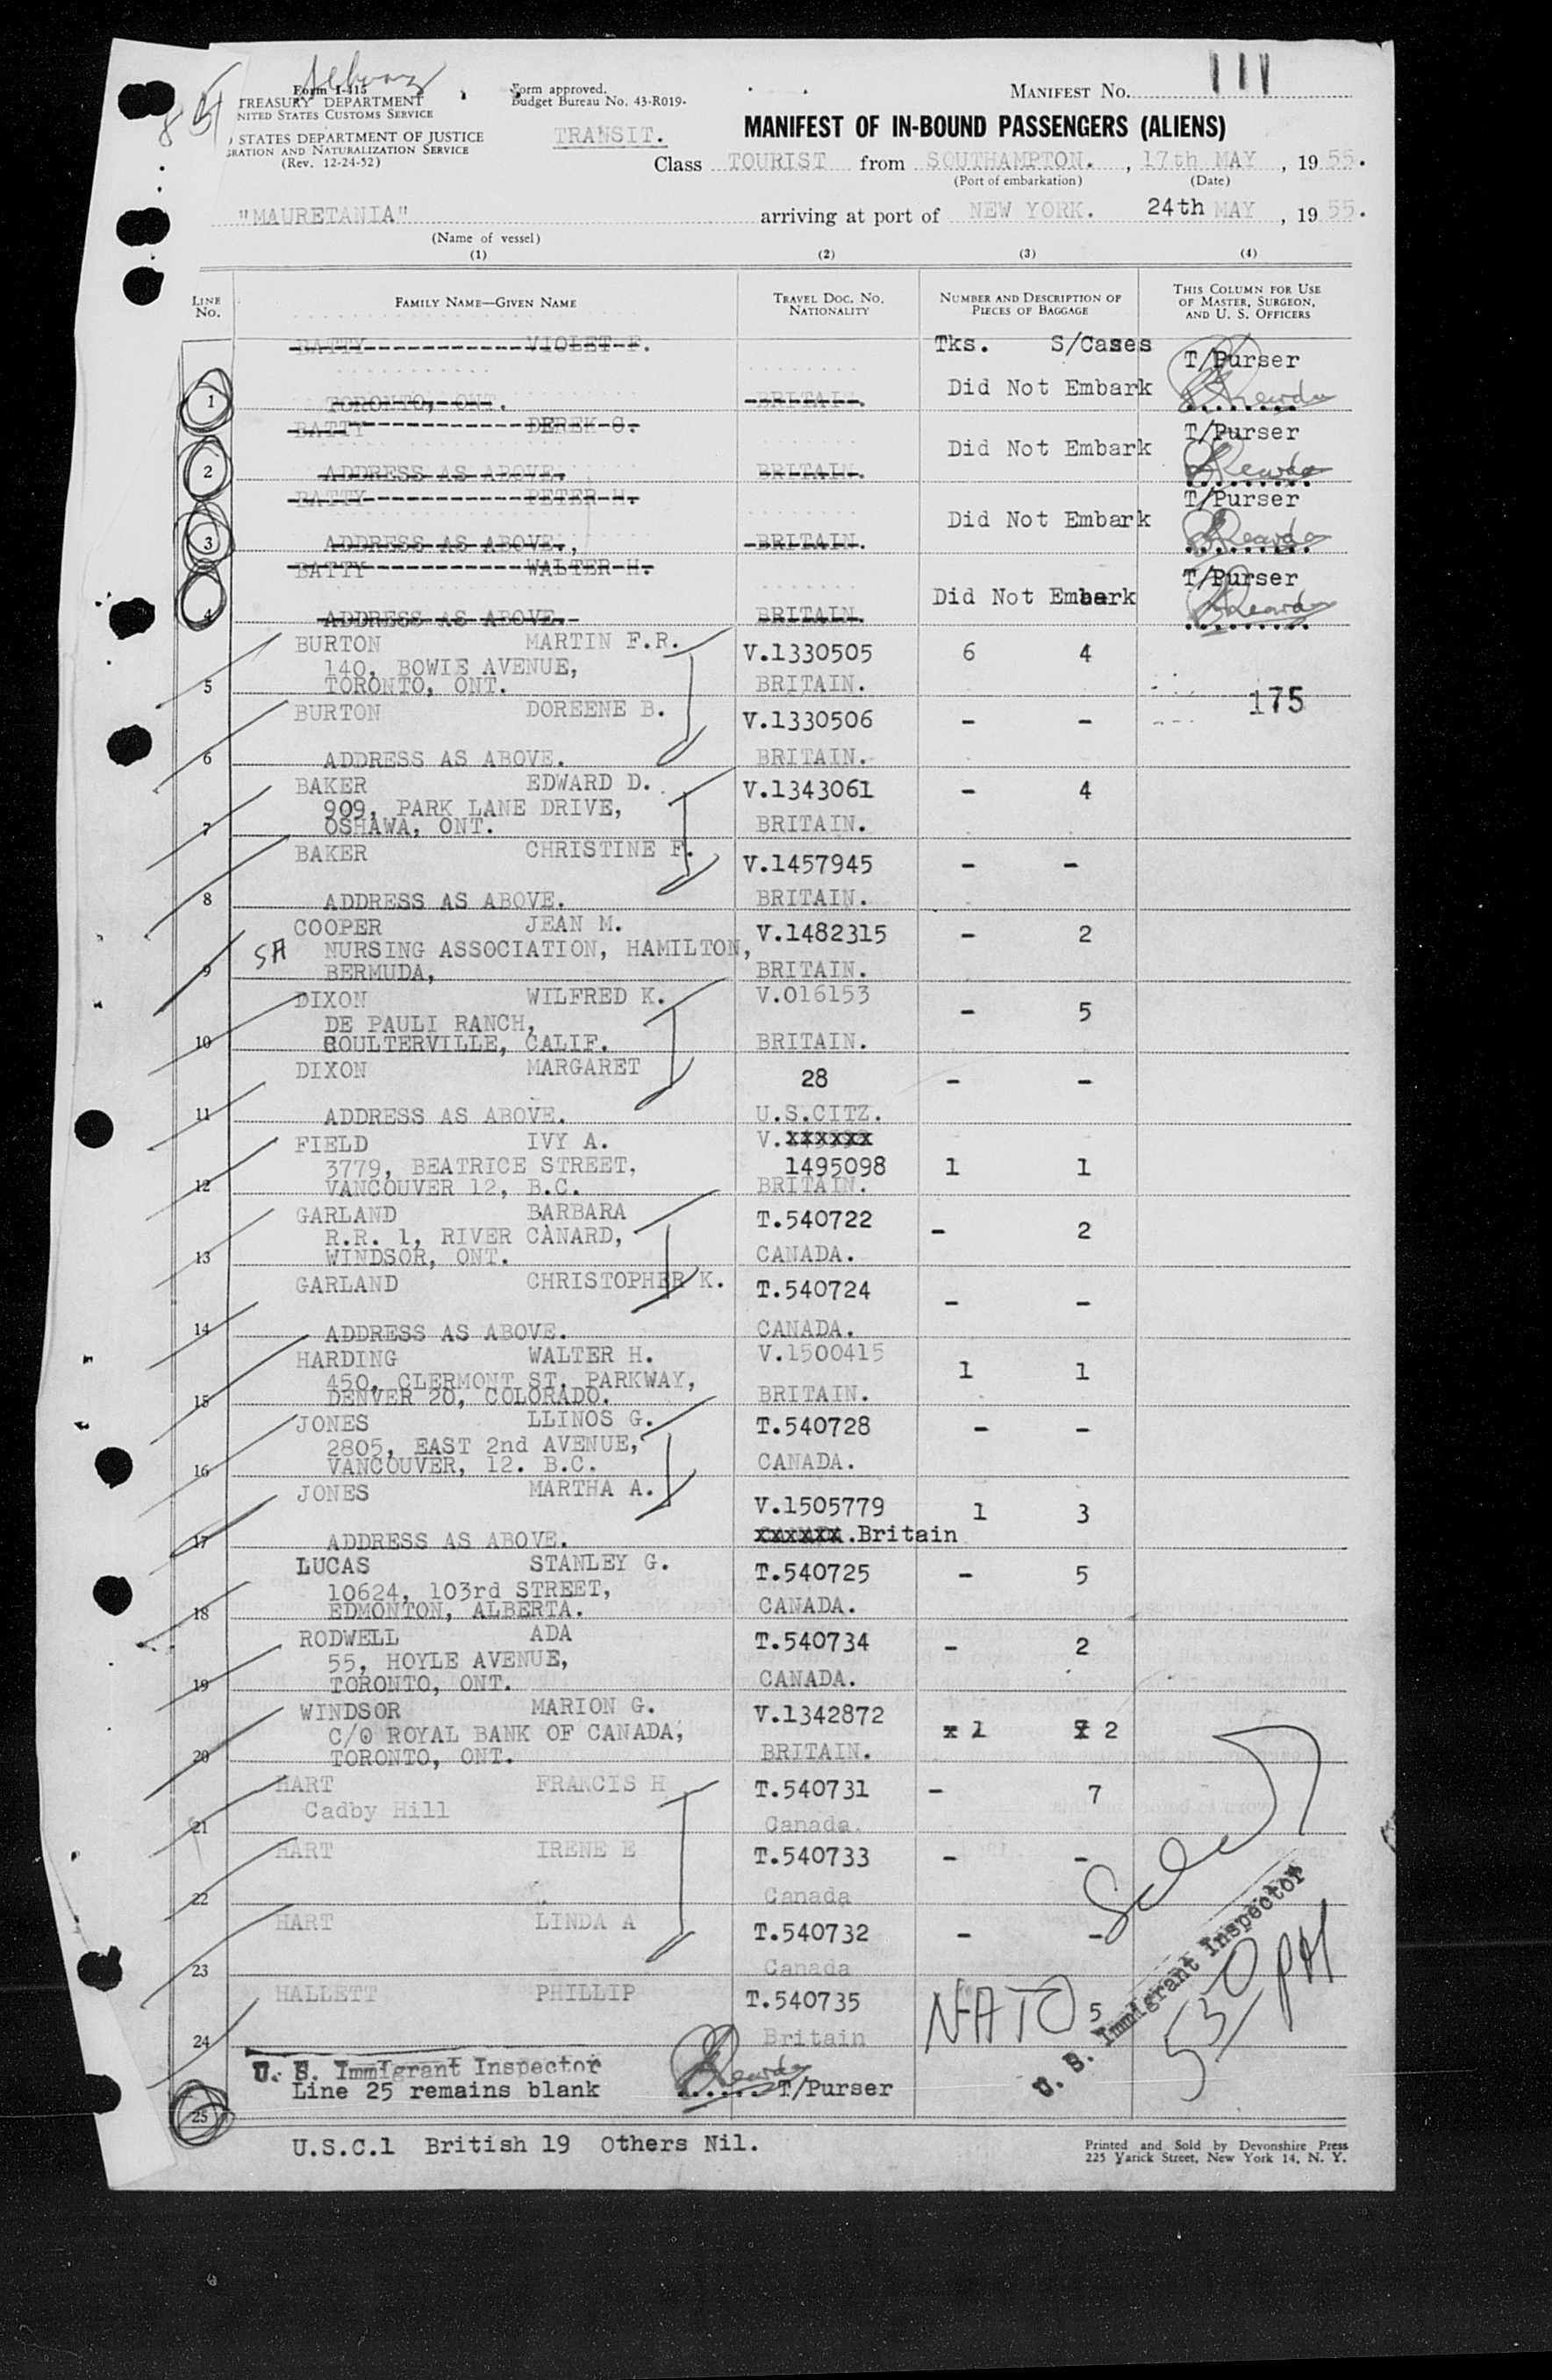 Form I-415
TREASURY DEPARTMENT
NITED STATES CUSTOMS SERVICE
STATES DEPARTMENT OF JUSTICE
GRATION AND NATURALIZATION SERVICE
(Rev. 12-24-52)
Form approved.
Budget Bureau No. 43-R019-
TRANSIT.
MANIFEST No. 111
MANIFEST OF IN-BOUND PASSENGERS (ALIENS)
Class TOURIST from SOUTHAMPTON. , 17th MAY , 19 55.
(Port of embarkation) (Date)
"MAURETANIA" arriving at port of NEW YORK. 24th MAY , 19 55.
(Name of vessel)
(1) (2) (3) (4)
LINE No. FAMILY NAME—GIVEN NAME TRAVEL DOC. No. NATIONALITY NUMBER AND DESCRIPTION OF PIECES OF BAGGAGE THIS COLUMN FOR USE OF MASTER, SURGEON, AND U. S. OFFICERS
BATTY VIOLET F. Tks. S/Cases T/Purser
Did Not Embark
1 TORONTO, ONT. BRITAIN.
BATTY DEREK G. T/Purser
Did Not Embark
2 ADDRESS AS ABOVE. BRITAIN.
BATTY PETER H. T/Purser
Did Not Embark
3 ADDRESS AS ABOVE., BRITAIN.
BATTY WALTER H. T/Purser
Did Not Embark
4 ADDRESS AS ABOVE. BRITAIN.
BURTON MARTIN F.R. V.1330505 6 4
140, BOWIE AVENUE,
5 TORONTO, ONT. BRITAIN. 175
BURTON DOREENE B. V.1330506 - -
6 ADDRESS AS ABOVE. BRITAIN.
BAKER EDWARD D. V.1343061 - 4
909, PARK LANE DRIVE,
7 OSHAWA, ONT. BRITAIN.
BAKER CHRISTINE F. V.1457945 - -
8 ADDRESS AS ABOVE. BRITAIN.
COOPER JEAN M. V.1482315 - 2
SA NURSING ASSOCIATION, HAMILTON,
9 BERMUDA, BRITAIN.
DIXON WILFRED K. V.016153 - 5
DE PAULI RANCH,
10 COULTERVILLE, CALIF. BRITAIN.
DIXON MARGARET 28 - -
11 ADDRESS AS ABOVE. U.S.CITZ.
FIELD IVY A. V.xxxxxx
3779, BEATRICE STREET, 1495098 1 1
12 VANCOUVER 12, B.C. BRITAIN.
GARLAND BARBARA T.540722 - 2
R.R. 1, RIVER CANARD,
13 WINDSOR, ONT. CANADA.
GARLAND CHRISTOPHER K. T.540724 - -
14 ADDRESS AS ABOVE. CANADA.
HARDING WALTER H. V.1500415 1 1
450, CLERMONT ST. PARKWAY,
15 DENVER 20, COLORADO. BRITAIN.
JONES LLINOS G. T.540728 - -
2805, EAST 2nd AVENUE,
16 VANCOUVER, 12. B.C. CANADA.
JONES MARTHA A. V.1505779 1 3
17 ADDRESS AS ABOVE. xxxxxx.Britain
LUCAS STANLEY G. T.540725 - 5
10624, 103rd STREET,
18 EDMONTON, ALBERTA. CANADA.
RODWELL ADA T.540734 - 2
55, HOYLE AVENUE,
19 TORONTO, ONT. CANADA.
WINDSOR MARION G. V.1342872 x 1 x 2
C/O ROYAL BANK OF CANADA,
20 TORONTO, ONT. BRITAIN.
HART FRANCIS H T.540731 - 7
Cadby Hill
21 Canada.
HART IRENE E T.540733 - -
22 Canada
HART LINDA A T.540732 - -
23 Canada
HALLETT PHILLIP T.540735 NATO 5
24 Britain
U. S. Immigrant Inspector
530 PM
U. S. Immigrant Inspector
Line 25 remains blank ...... T/Purser
25
U.S.C.1 British 19 Others Nil.
Printed and Sold by Devonshire Press
225 Varick Street, New York 14, N. Y.